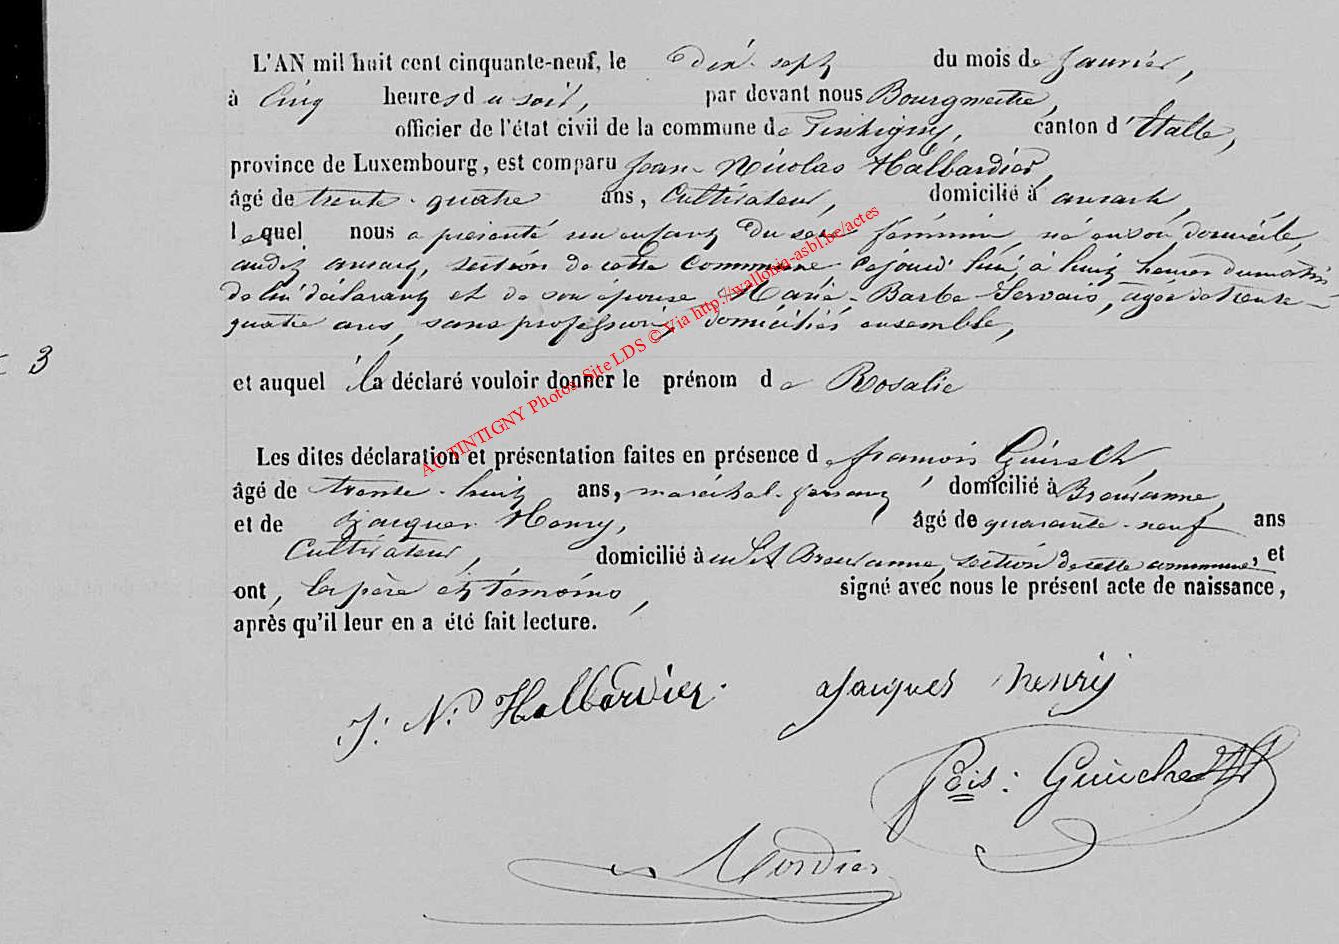 L'AN mil huit cent cinquante-neuf, le dix-sept du mois de Janvier,
à Cinq heures du soir, par devant nous Bourgmestre,
officier de l'état civil de la commune de Tintigny, canton d'Etalle,
province de Luxembourg, est comparu Jean-Nicolas Halbardier,
âgé de trente-quatre ans, Cultivateur, domicilié à ansart,
lequel nous a présenté un enfant du sexe féminin, né en son domicile,
audit ansart, section de cette Commune, cejourd'hui, à huit heures du matin
de lui déclarant et de son épouse Marie-Barbe Gervais, agée de trente-
quatre ans, sans profession, domiciliés ensemble,
3
et auquel il a déclaré vouloir donner le prénom de Rosalie
Les dites déclaration et présentation faites en présence de françois
âgé de trente-huit ans, maréchal-ferrant, domicilié à Breuvanne,
et de Jacques Henry, âgé de quarante-neuf ans
Cultivateur, domicilié à Breuvanne, section de cette commune, et
ont, les père et témoins, signé avec nous le présent acte de naissance,
après qu'il leur en a été fait lecture.
J: N: Halbardier. Jacques henry
fcois:
AC TINTIGNY Photos Site LDS © Via http://wallonia-asbl.be/actes